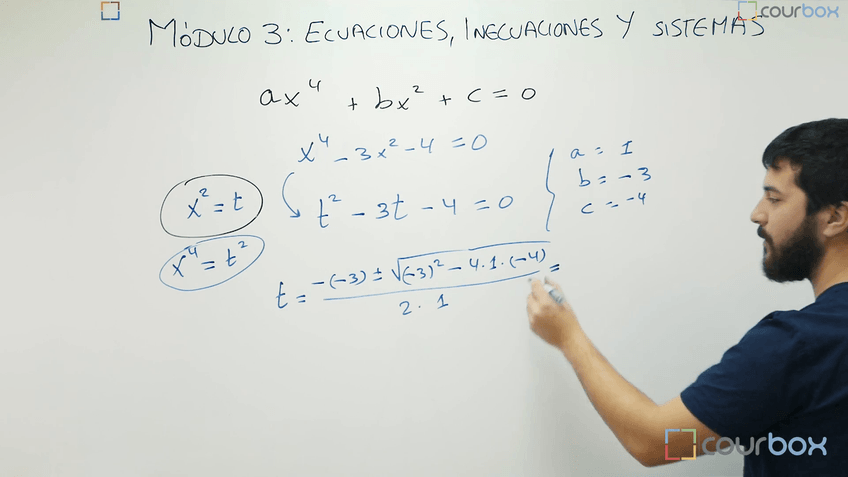 courbox
MÓDULO 3: ECUACIONES, INECUACIONES Y SISTEMAS
ax⁴ + bx² + c = 0
x⁴ - 3x² - 4 = 0
a = 1
b = -3
c = -4
x² = t
t² - 3t - 4 = 0
x⁴ = t²
t = (-(-3) ± √((-3)² - 4·1·(-4))) / (2·1) =
courbox